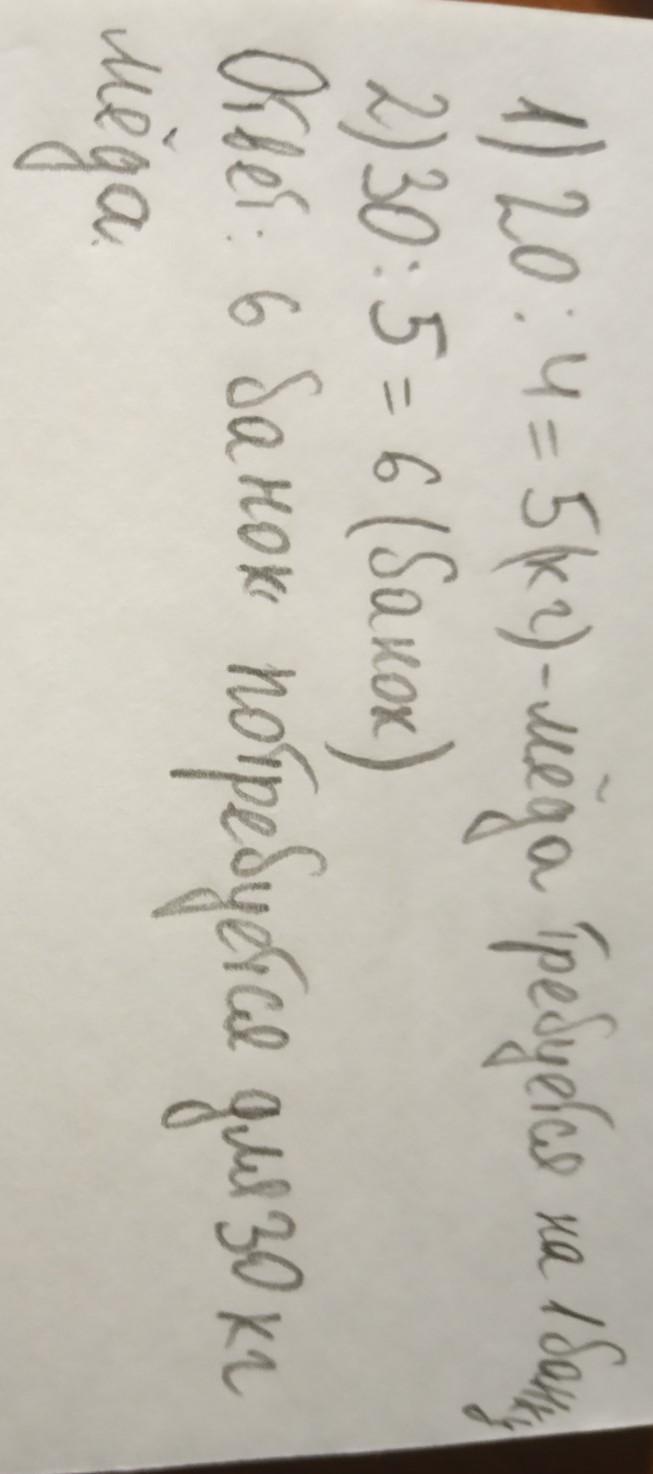 1) 20 : 4 = 5 (кг) - мёда требуется на 1 банку
2) 30 : 5 = 6 (банок)
Ответ: 6 банок потребуется для 30 кг
мёда.